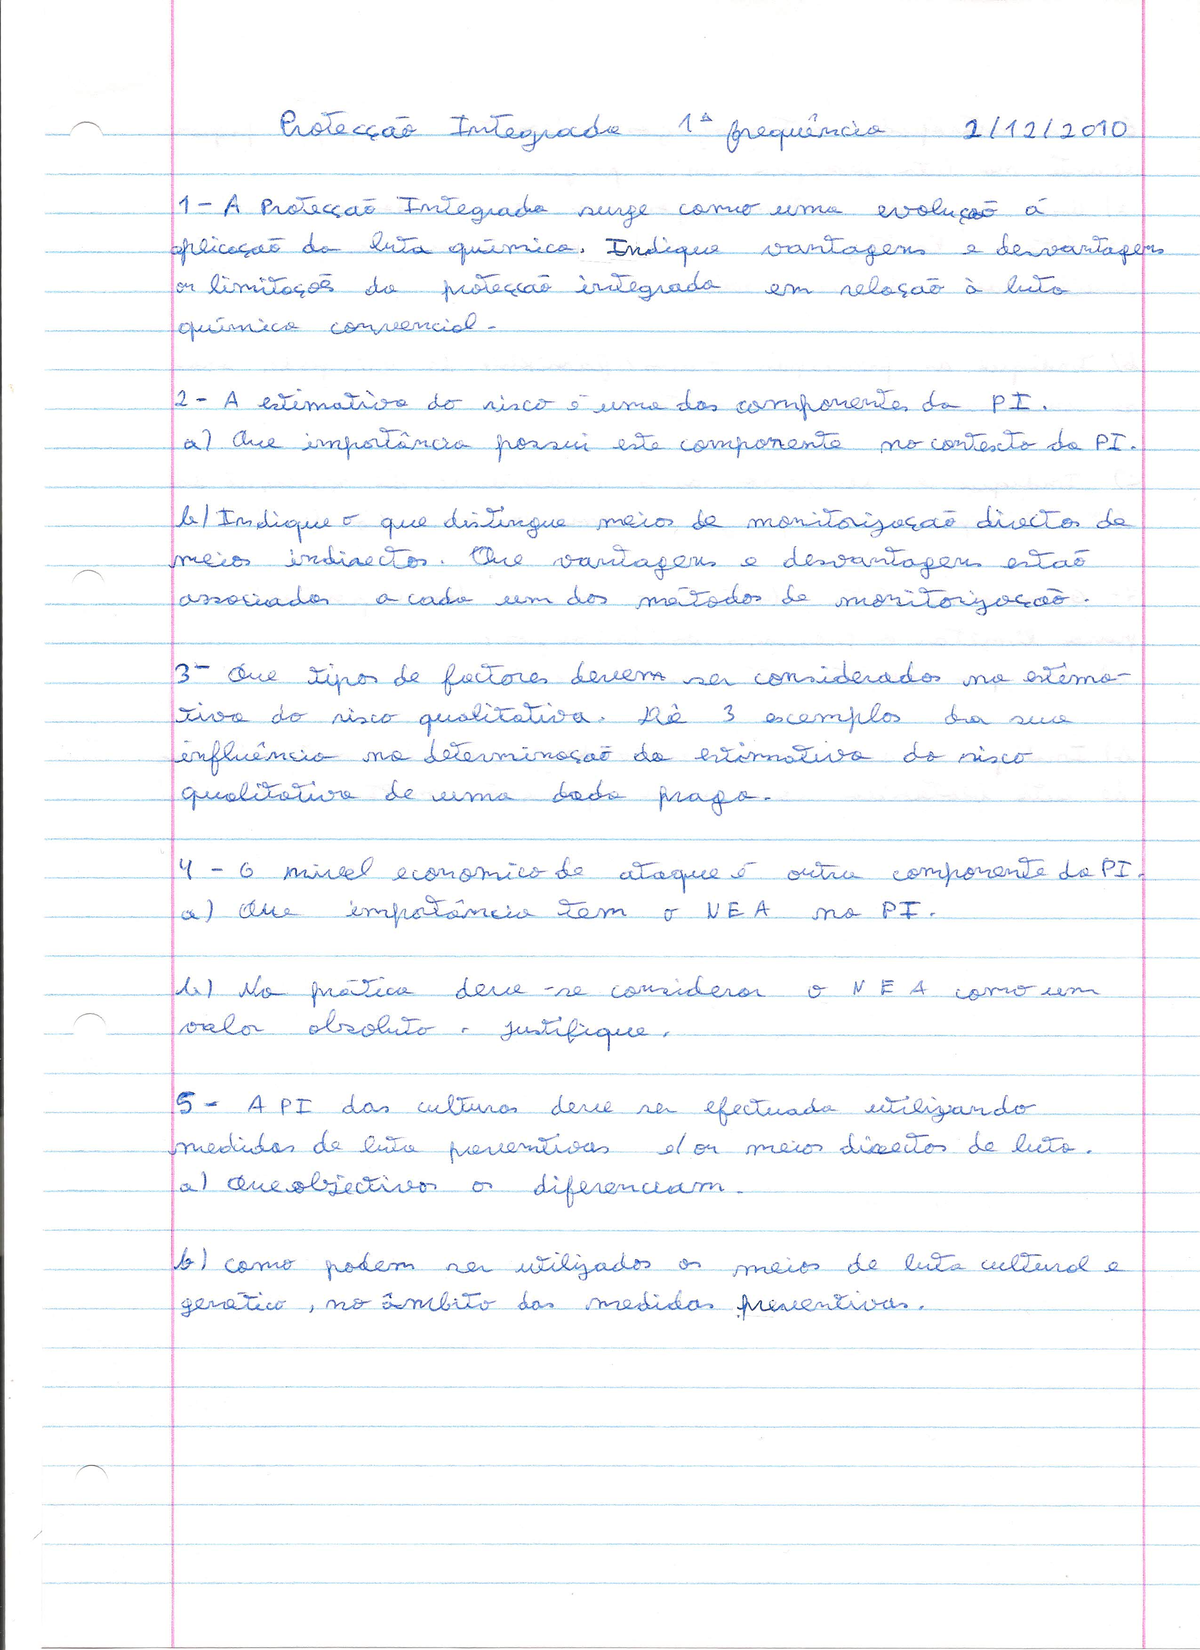 Protecção Integrada 1ª frequência 2/12/2010
1 - A Protecção Integrada surge como uma evolução á
aplicação da luta química. Indique vantagens e desvantagens
ou limitações da protecção integrada em relação à luta
química convencial.
2 - A estimativa do risco é uma das componentes da PI.
a) Que importância possui este componente no contexto da PI.
b) Indique o que distingue meios de monitorização directos de
meios indirectos. Que vantagens e desvantagens estão
associadas a cada um dos métodos de monitorização.
3 - Que tipos de factores devem ser considerados na estima-
tiva do risco qualitativa. Dê 3 exemplos da sua
influência na determinação da estimativa do risco
qualitativa de uma dada praga.
4 - O nível economico de ataque é outra componente da PI.
a) Que importância tem o NEA na PI.
b) Na prática deve-se considerar o NEA como um
valor absoluto. Justifique.
5 - A PI das culturas deve ser efectuada utilizando
medidas de luta preventivas e/ou meios directos de luta.
a) Que objectivos os diferenciam.
b) como podem ser utilizados os meios de luta cultural e
genético, no âmbito das medidas preventivas.